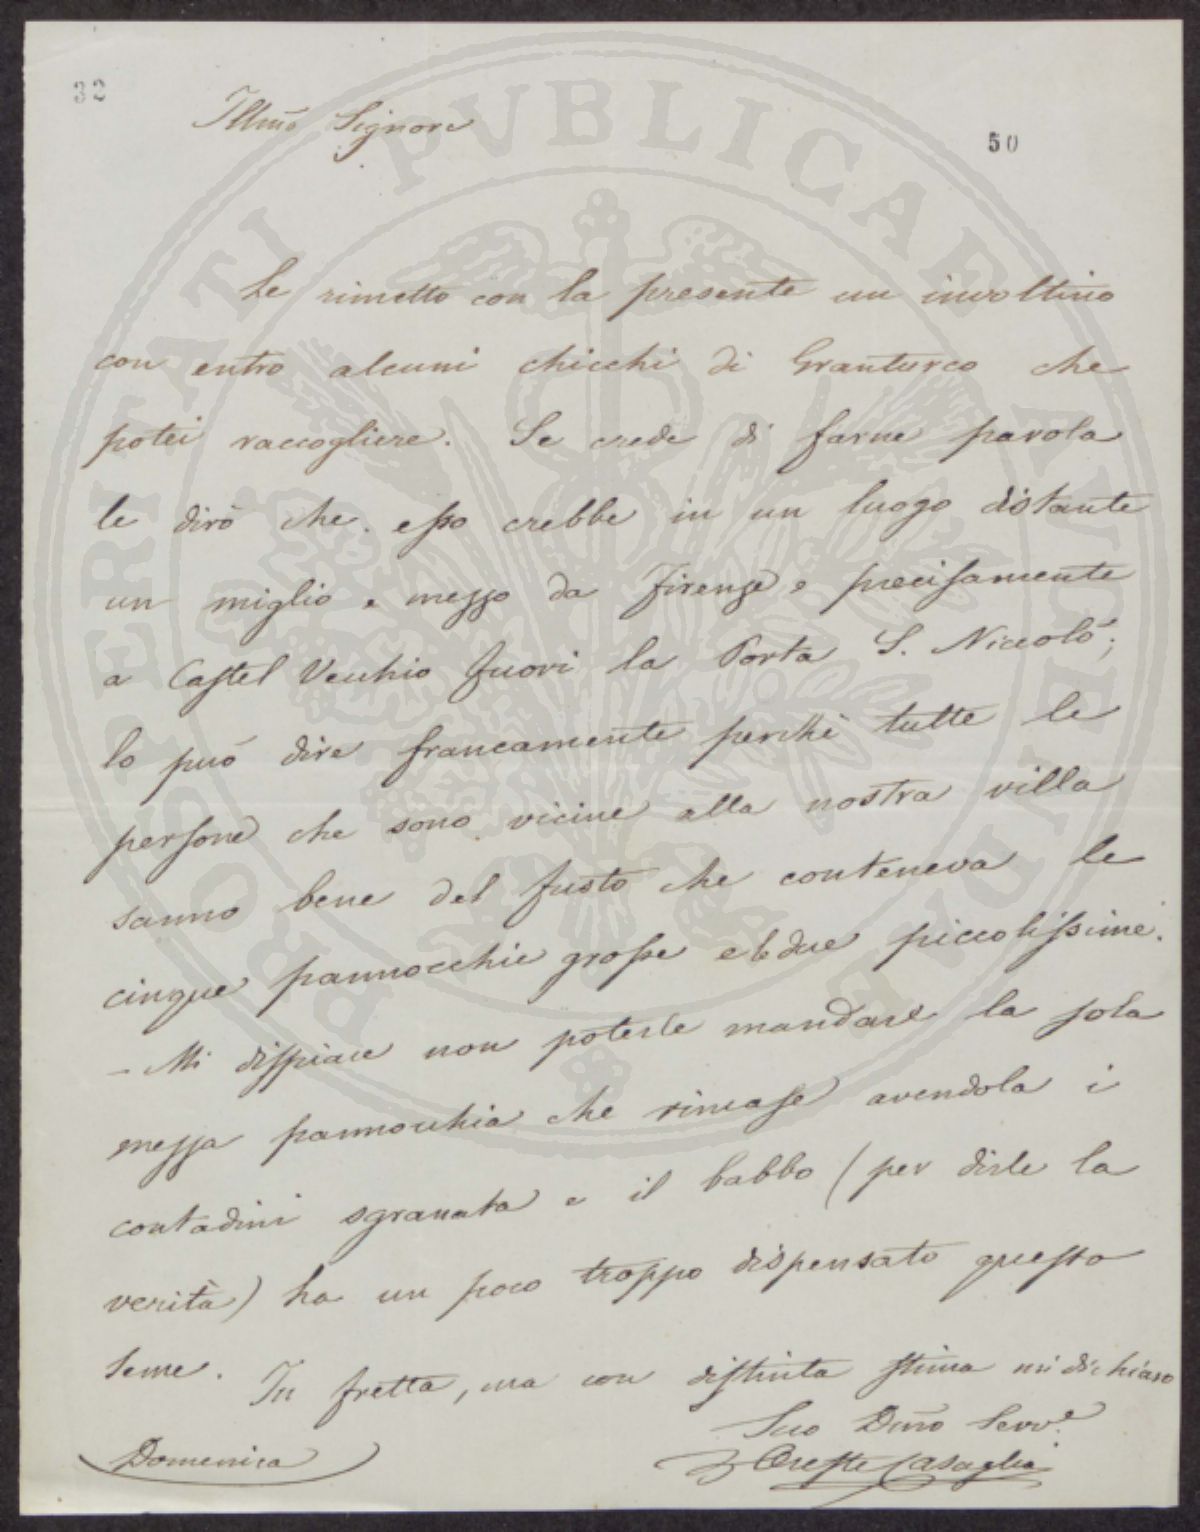 32
50
Illmo Signore
Le rimetto con la presente un involtino
con entro alcuni chicchi di Granturco che
potei raccogliere. Se crede di farne parola
le dirò che esso crebbe in un luogo distante
un miglio e mezzo da Firenze e precisamente
a Castel Vecchio fuori la Porta S. Niccolò;
lo può dire francamente perchè tutte le
persone che sono vicine alla nostra villa
sanno bene del fusto che conteneva le
cinque pannocchie grosse e le due piccolissime.
– Mi dispiace non poterle mandare la sola
mezza pannocchia che rimase avendola i
contadini sgranata e il babbo (per dirle la
verità) ha un poco troppo dispensato questo
seme. In fretta, ma con distinta stima mi dichiaro
Suo Dmo Servo
Domenica
Oreste Casaglia
PROSPERITATI PVBLICAE AVGENDAE